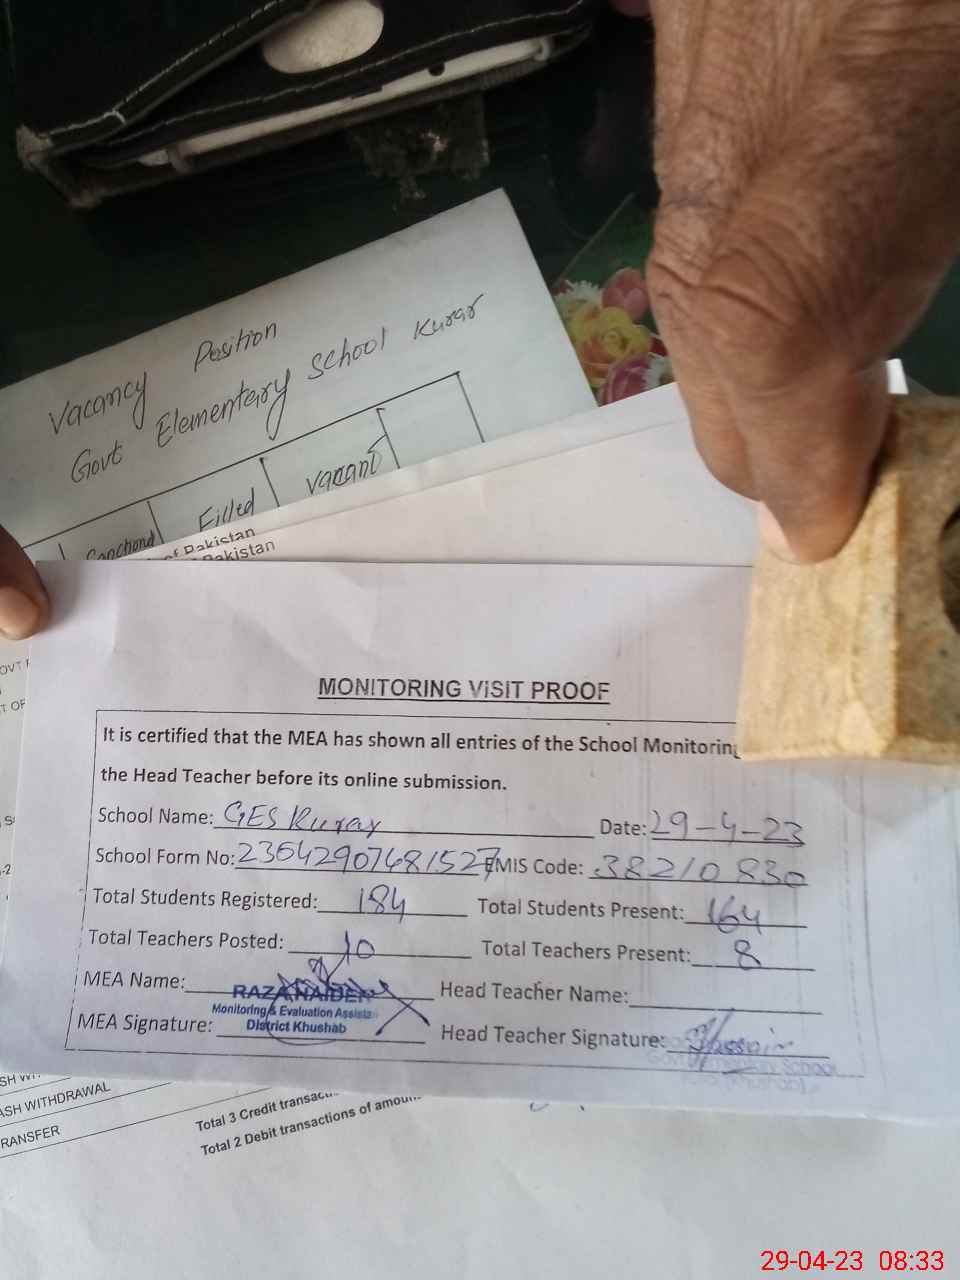 Vacancy Position
Govt Elementary School Kurar
Sanctiond Filled Vacant
of Pakistan
Pakistan
MONITORING VISIT PROOF
It is certified that the MEA has shown all entries of the School Monitoring
the Head Teacher before its online submission.
School Name: GES Kurar Date: 29-4-23
School Form No: EMIS Code: 38210830
Total Students Registered: 184 Total Students Present: 164
Total Teachers Posted: 10 Total Teachers Present: 8
MEA Name: RAZA HAIDER Head Teacher Name:
Monitoring & Evaluation Assista
MEA Signature: District Khushab Head Teacher Signature:
Govt Elementary School
(Khushab)
ASH WITHDRAWAL
RANSFER
Total 3 Credit transac
Total 2 Debit transactions of amou
29-04-23 08:33